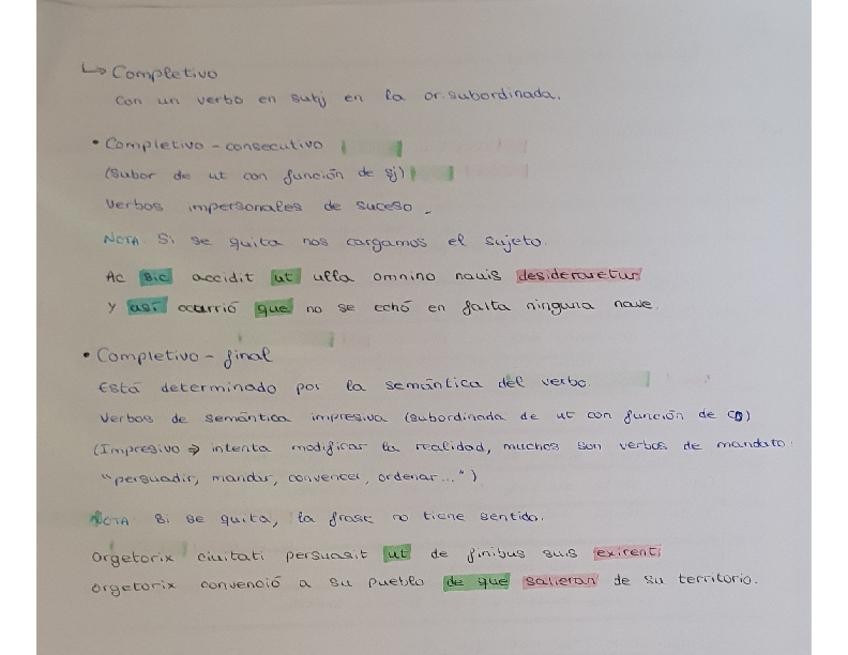 ↳ Completivo
Con un verbo en subj en la or. subordinada.
• Completivo - consecutivo
(Subor de ut con función de sj)
Verbos impersonales de suceso.
NOTA Si se quita nos cargamos el sujeto.
Ac sic accidit ut ulla omnino navis desideraretur
Y así ocurrió que no se echó en falta ninguna nave.
• Completivo - final
Está determinado por la semántica del verbo.
Verbos de semántica impresiva (subordinada de ut con función de CD)
(Impresivo ⇒ intenta modificar la realidad, muchos son verbos de mandato:
"persuadir, mandar, convencer, ordenar...")
NOTA Si se quita, la frase no tiene sentido.
Orgetorix civitati persuasit ut de finibus suis exirent
Orgetorix convenció a su pueblo de que salieran de su territorio.